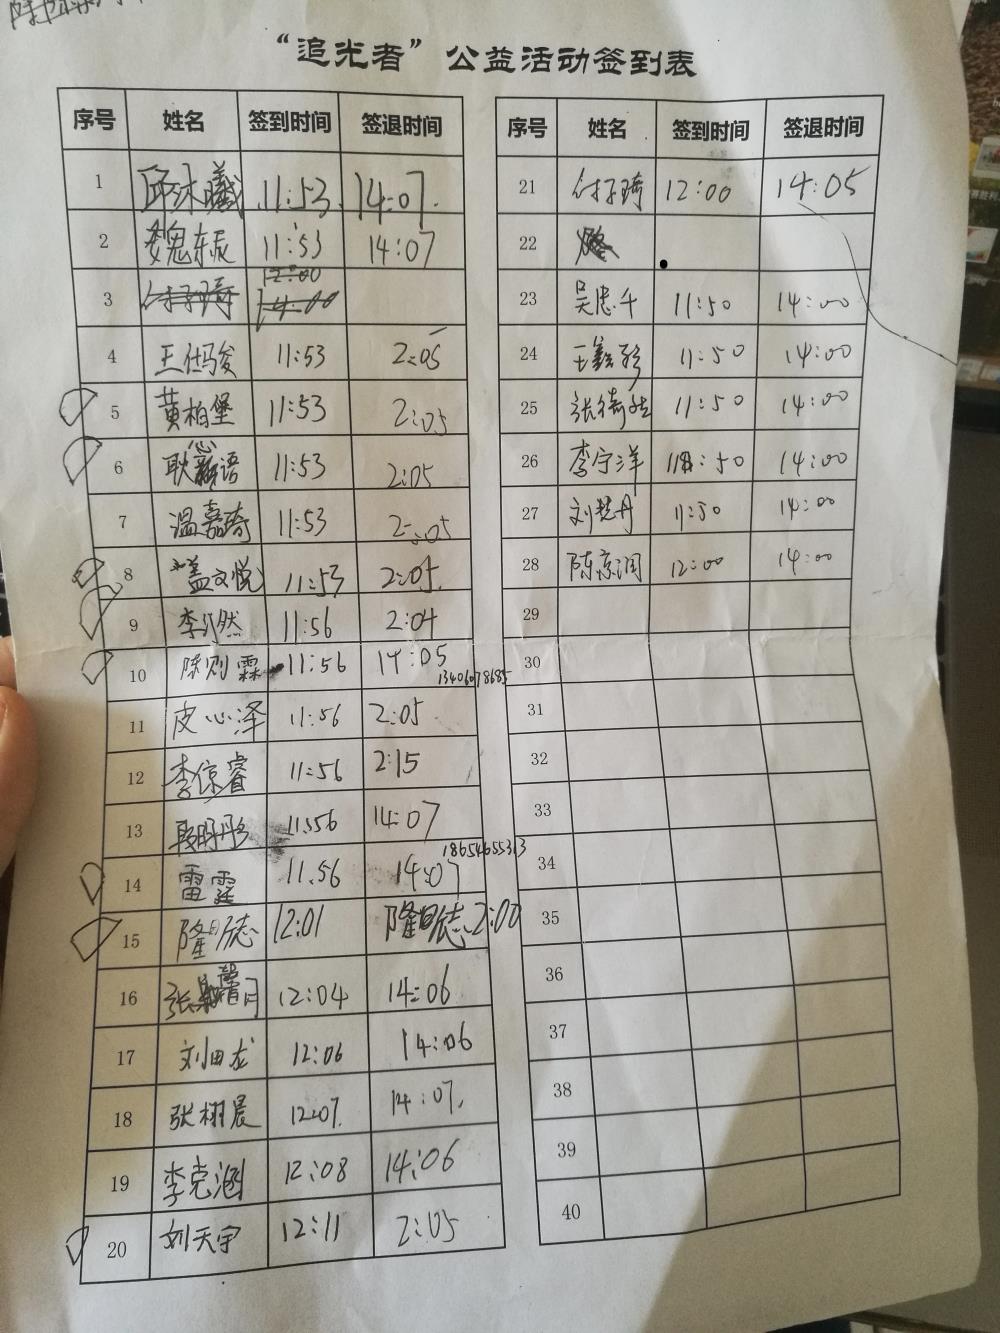 “追光者”公益活动签到表
序号 姓名 签到时间 签退时间
1 邱沐曦 11:53 14:07.
2 魏东辰 11:53 14:07
3 12:00 14:00
4 王仕骏 11:53 2:05
5 黄柏堡 11:53 2:05
6 耿心语 11:53 2:05
7 温嘉琦 11:53 2:05
8 盖文悦 11:53 2:05.
9 李 然 11:56 2:04
10 陈则霖 11:56 14:05
13406078685
11 皮心泽 11:56 2:05
12 李倞睿 11:56 2:15
13 11:556 14:07
18654655313
14 雷霆 11.56 14:07
15 隆 12:01 隆 2:00
16 张馨月 12:04 14:06
17 刘田龙 12:06 14:06
18 张栩晨 12:07. 14:07.
19 李克涵 12:08 14:06
20 刘天宇 12:11 2:05
序号 姓名 签到时间 签退时间
21 付子琦 12:00 14:05
22
23 吴 千 11:50 14:00
24 王 11:50 14:00
25 张 11:50 14:00
26 李宁洋 11:50 14:00
27 刘 丹 11:50 14:00
28 陈京润 12:00 14:00
29
30
31
32
33
34
35
36
37
38
39
40